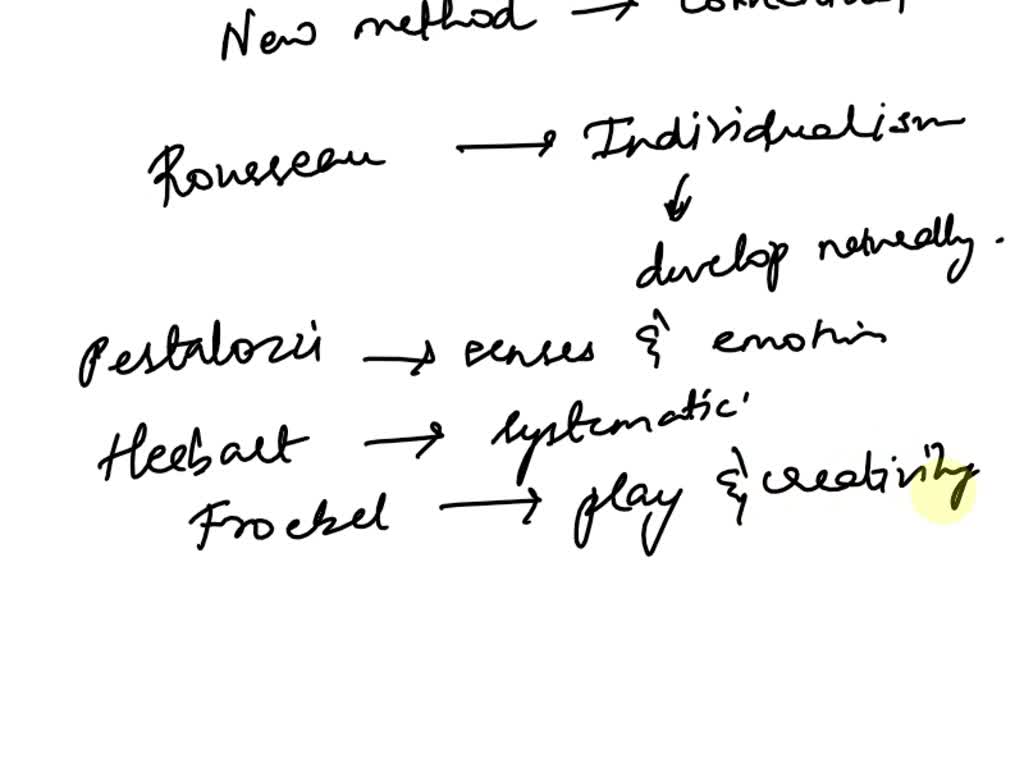 New method →
Rousseau → Individualism
↓
develop naturally.
Pestalozii → senses & emotion
Heebart → systematic
Froebel → play & creativity